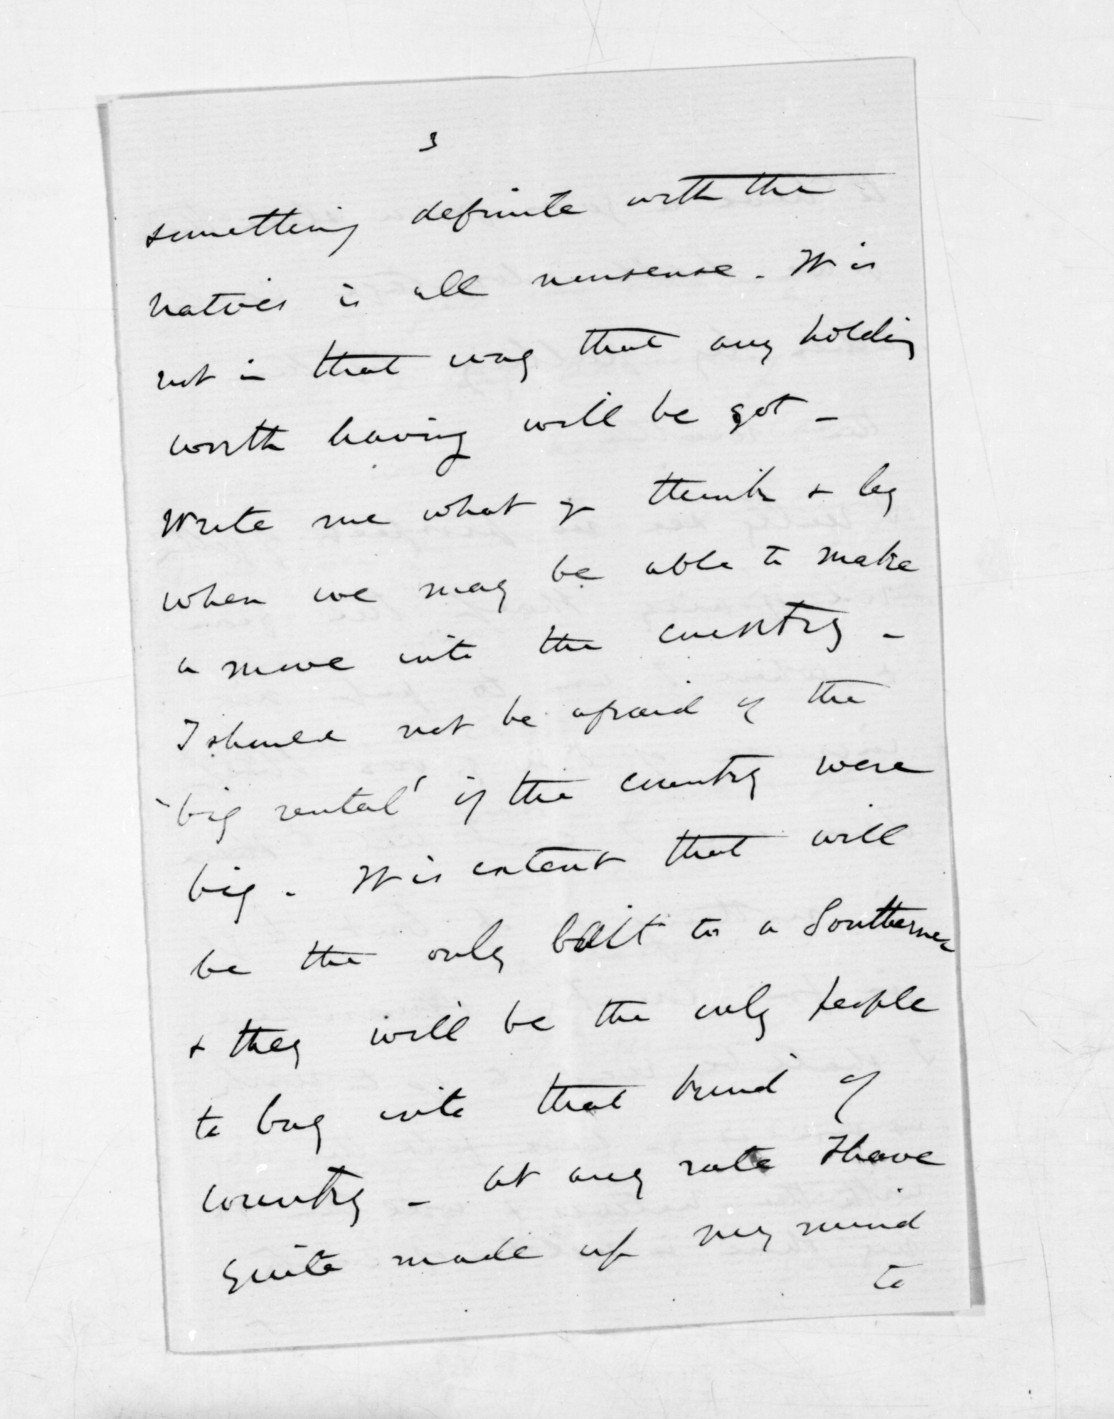 3
something definite with the
natives is all nonsense. It is
not in that way that any holding
worth having will be got –
Write me what y think &
when we may be able to make
a move into the country –
I should not be afraid of the
'big rental' if the country were
big. It is extent that will
be the only bait to a Southerner
& they will be the only people
to buy into that kind of
country – at any rate I have
quite made up my mind
to